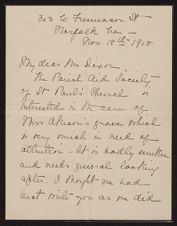 303 W Freemason St
Norfolk Va -
Nov 15th 1915
My dear Mr Dixon.
The Parish Aid Society
of St Paul's Church is
intrusted in the care of
Mrs grave which
is very much in need of
attention - It is badly sunken
and needs general looking
after. I thought we had
best write you as we did